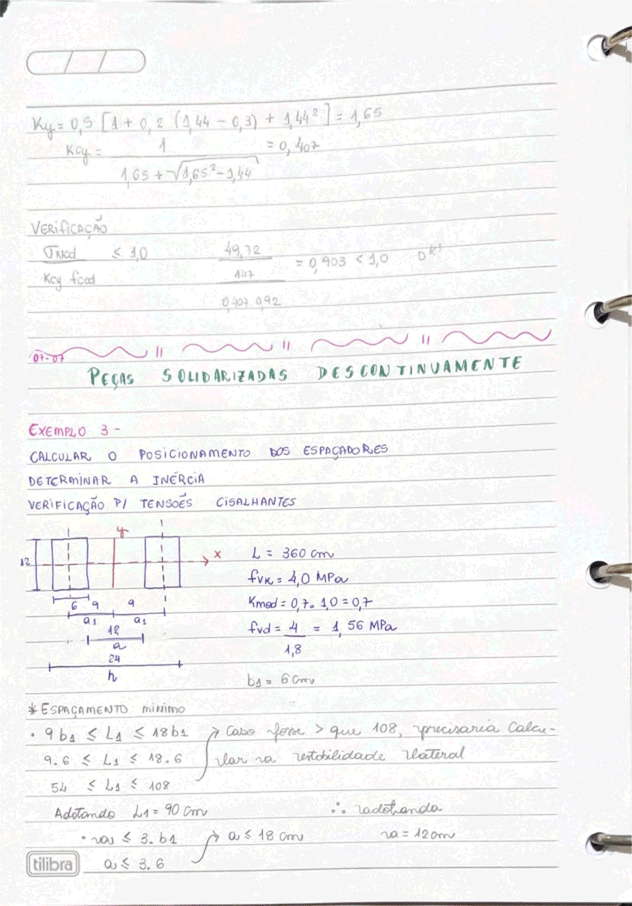 Ky = 0,5 [1 + 0,2 (1,44 - 0,3) + 1,44²] = 1,65
Kcy = 1 = 0,407
1,65 + √1,65² - 1,44
VERIFICAÇÃO
σNcd ≤ 1,0 49,72 = 0,903 < 1,0 ok!
Kcy fcod 147
0,407.0,92
07-07
PEÇAS SOLIDARIZADAS DESCONTINUAMENTE
EXEMPLO 3 -
CALCULAR O POSICIONAMENTO DOS ESPAÇADORES
DETERMINAR A INÉRCIA
VERIFICAÇÃO P/ TENSÕES CISALHANTES
y
12 x L = 360 cm
fvk = 4,0 MPa
6 9 9 Kmod = 0,7.1,0 = 0,7
a1 a1
18 fvd = 4 = 1,56 MPa
a 1,8
24
h b1 = 6 cm
* ESPAÇAMENTO mínimo
• 9b1 ≤ L1 ≤ 18b1 → Caso fosse > que 108, precisaria calcu-
9.6 ≤ L1 ≤ 18.6 lar a estabilidade lateral
54 ≤ L1 ≤ 108
Adotando L1 = 90 cm ∴ adotando
• a ≤ 3.b1 → a ≤ 18 cm a = 12 cm
a ≤ 3.6
tilibra